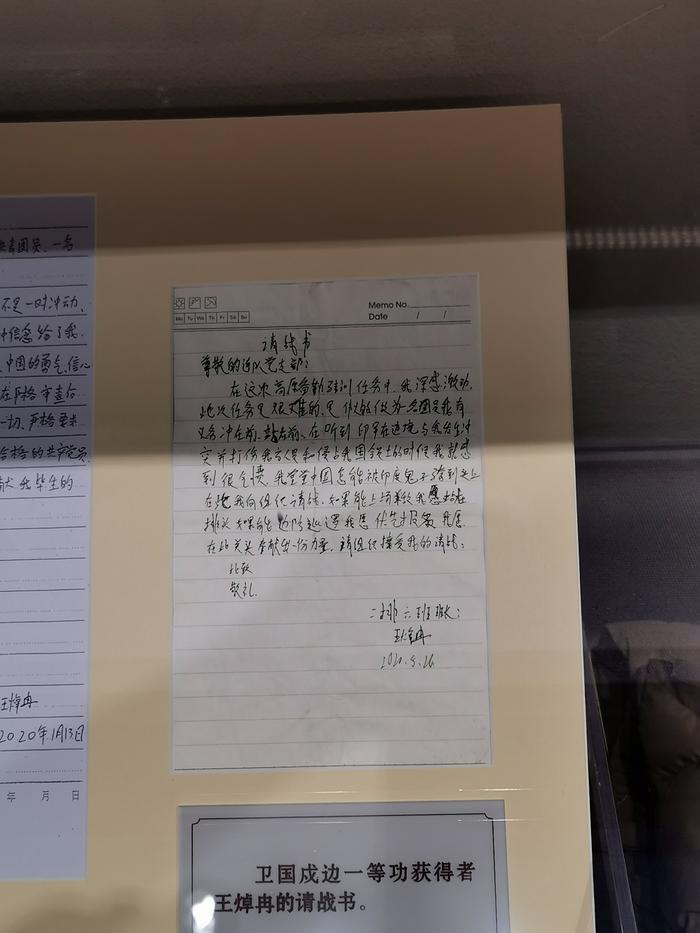 共青团员、一名
不是一时冲动、
信念给了我
中国的勇气、信心
在严格审查合
一切、严格要求
合格的共产党员
献我毕生的
王焯冉
2020年1月13日
年 月 日
Memo No.
Mo Tu We Th Fr Sa Su
Date / /
请战书
尊敬的连队党支部:
在这次高原备勤驻训任务中,我深感激动,
此次任务是很艰难的,是伟大的做为一名团员我有
义务冲在前,站在前,在听到印军在边境与我发生冲
突并打伤我官兵和侵占我国领土的时候我就感
到很气愤,我堂堂中国怎能被印度鬼子骑到头上
在此我向组织请战,如果能上前来我愿站在
排头如果能边防巡逻我愿 我愿
在此关头奉献出一份力量,请组织接受我的请战;
此致
敬礼
二排六班
王焯冉
2020.5.26
卫国戍边一等功获得者
王焯冉的请战书。